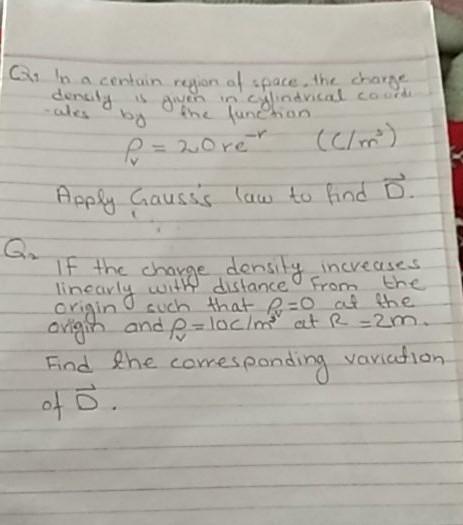 Q1, In a certain region of space, the charge
density is given in cylindrical coordi
-ates by the function
ρv = 20re⁻ʳ (C/m³)
Apply Gauss's law to find D⃗.
Q2
If the charge density increases
linearly with distance from the
origin such that ρv=0 at the
origin and ρv=10C/m³ at R=2m.
Find the corresponding variation
of D⃗.